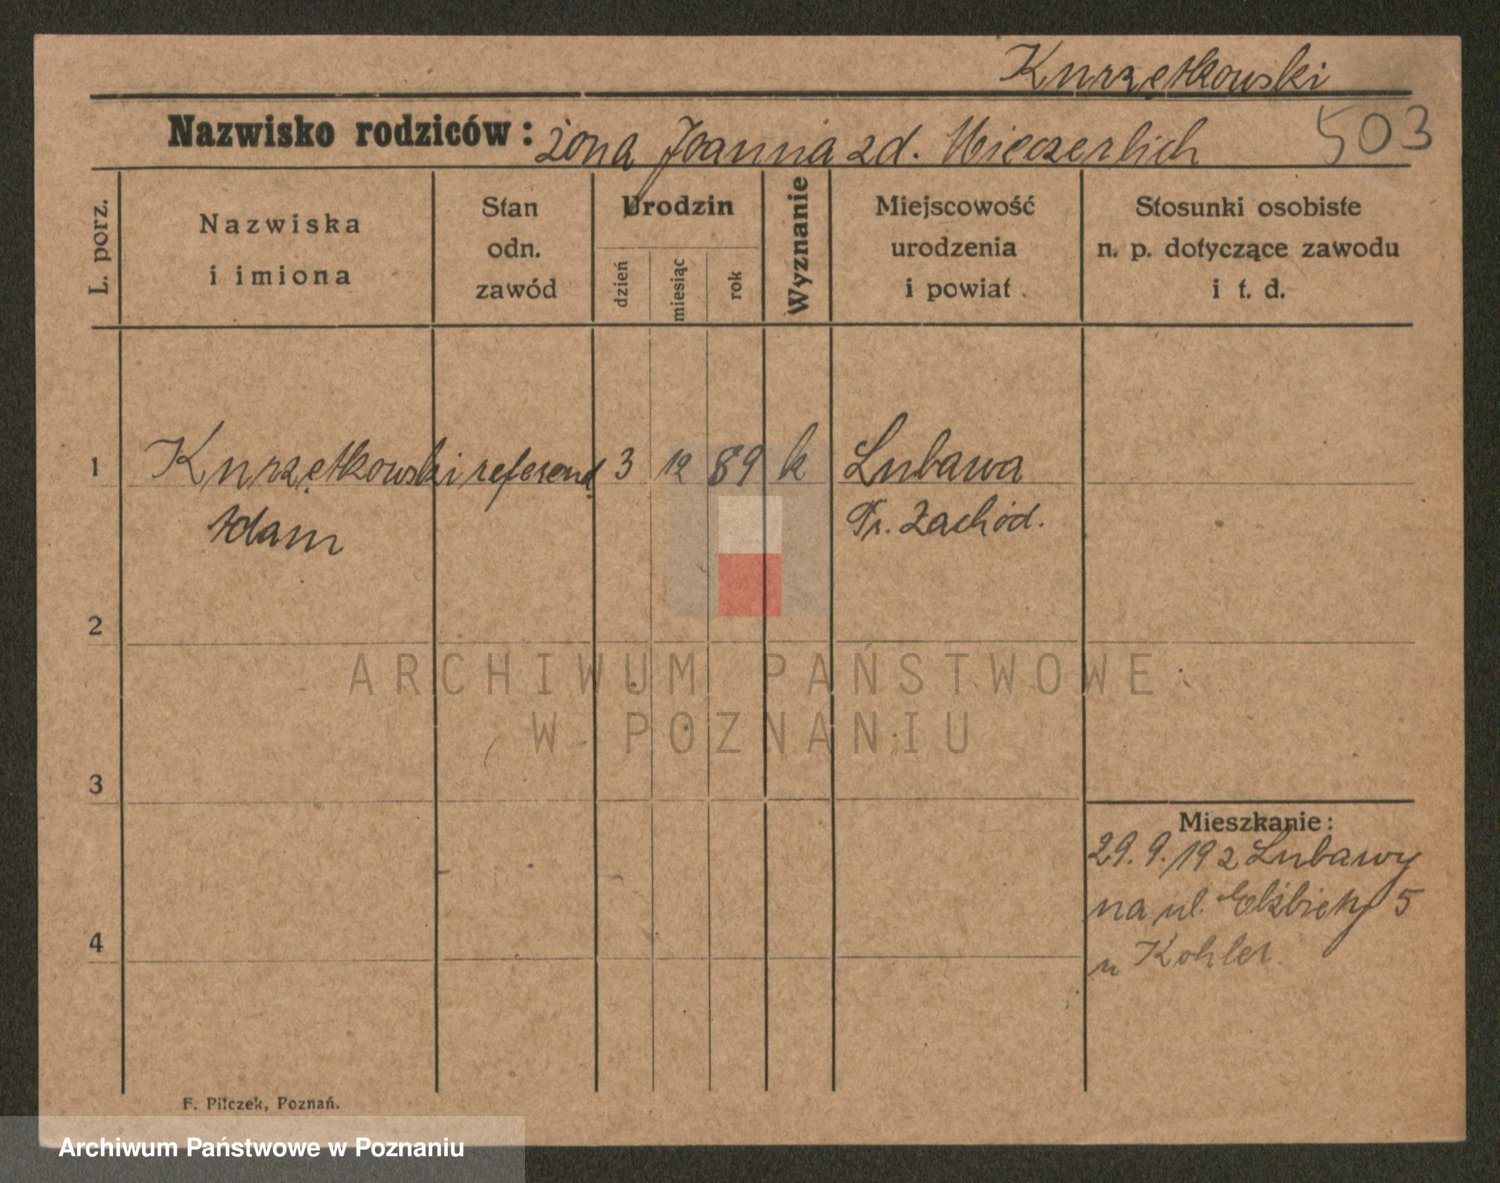 Kurzętkowski
503
Nazwisko rodziców: żona Joanna zd. Wieczerlich
L. porz.
Nazwiska
i imiona
Stan
odn.
zawód
Urodzin
dzień
miesiąc
rok
Wyznanie
Miejscowość
urodzenia
i powiat
Stosunki osobiste
n. p. dotyczące zawodu
i t. d.
1 Kurzętkowski referend 3 12 89 k Lubawa
Adam Pr. Zachod.
2
ARCHIWUM PAŃSTWOWE
W POZNANIU
3
Mieszkanie:
29.9.19 z Lubawy
na ul. Elżbiety 5
u Kohler.
4
F. Pilczek, Poznań.
Archiwum Państwowe w Poznaniu